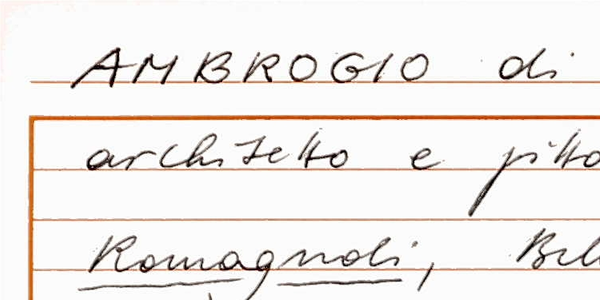 AMBROGIO di
architetto e pitto
Romagnoli, Bil